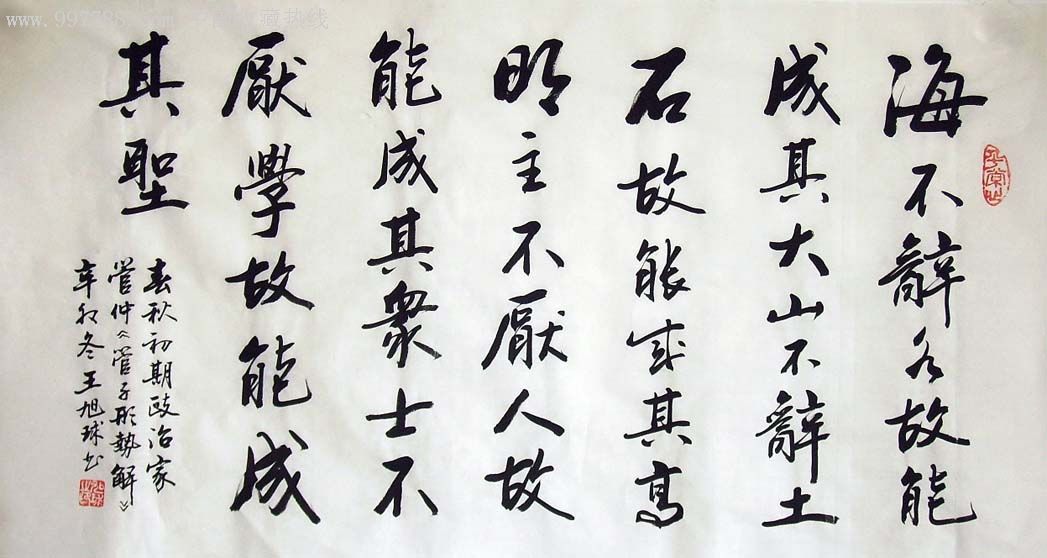 海不辭水故能
成其大山不辭土
石故能成其高
明主不厭人故
能成其衆士不
厭學故能成
其聖
春秋初期政治家
管仲《管子形勢解》
辛卯冬王旭球书
www.997788.com 中国收藏热线